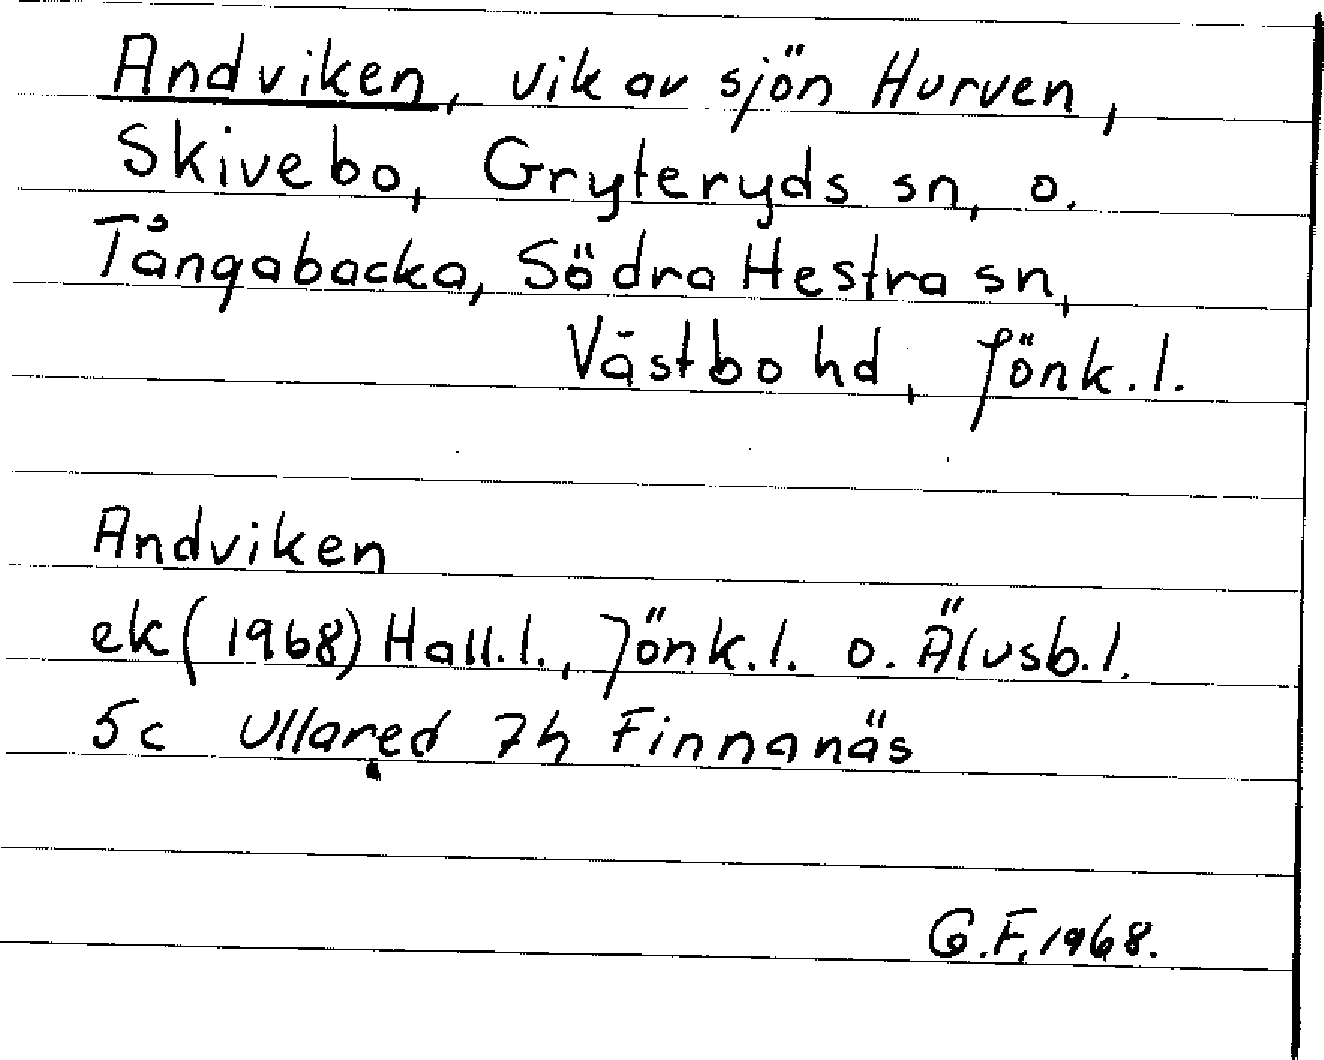 Andviken, vik av sjön Hurven,
Skivebo, Gryteryds sn, o.
Tångabacka, Södra Hestra sn,
Västbo hd, Jönk.l.
Andviken
ek (1968) Hall.l., Jönk.l. o. Älvsb.l.
5c Ullared 7h Finnanäs
G.F. 1968.